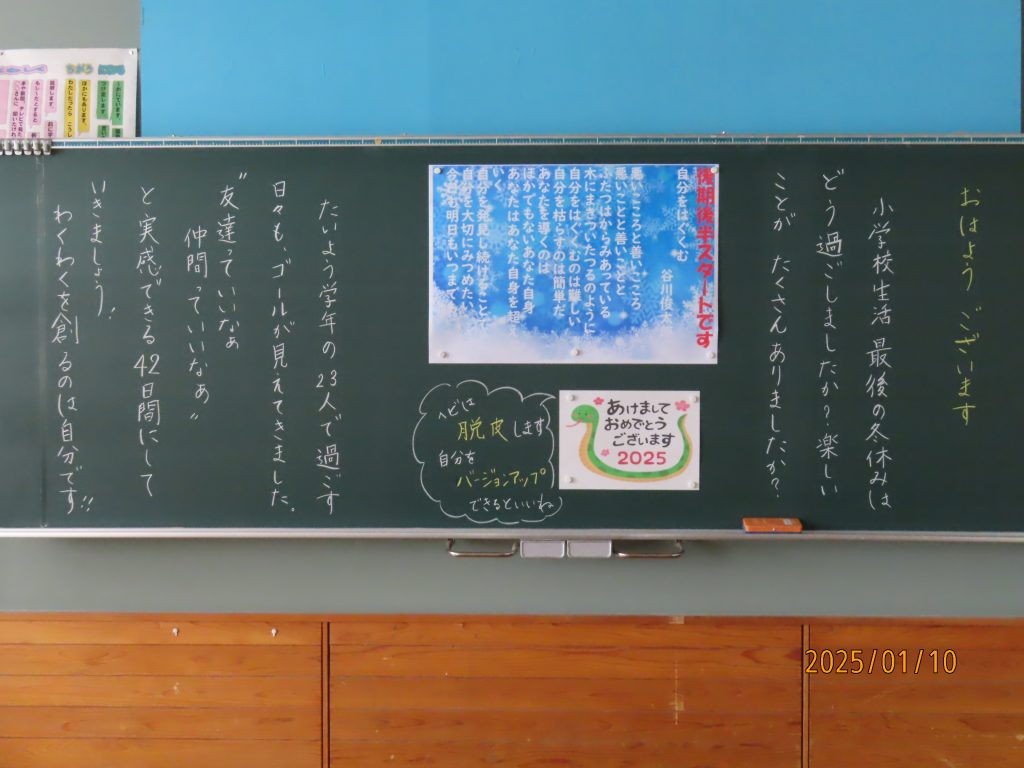 おはよう ございます
小学校生活 最後の冬休みは
どう過ごしましたか?楽しい
ことが たくさんありましたか?
後期後半スタートです
自分をはぐくむ
谷川俊太
悪いこころと善いこころ
悪いことと善いこと
ふたつはからみあっている
木にまきついたつるのように
自分をはぐくむのは難しい
自分を枯らすのは簡単だ
あなたを導くのは
ほかでもないあなた自身
あなたはあなた自身を超
いく
自分を発見し続けることで
自分を大切にみつめたい
今日も明日もいつまでも
あけまして
おめでとう
ございます
2025
ヘビは
脱皮します
自分を
バージョンアップ
できるといいね
たいよう学年の23人で過ごす
日々も、ゴールが見えてきました。
"友達っていいなぁ
仲間っていいなぁ"
と実感できる42日間にして
いきましょう!
わくわくを創るのは自分です!!
2025/01/10